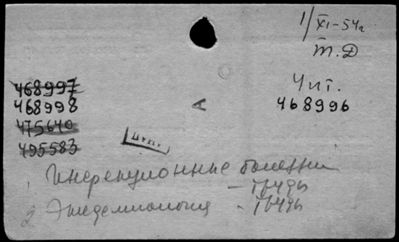 1/XI-54г.
т.Д
Чит.
468996
468997
468998
475640
495583
А
1 Инфекционные болезни
- Труды
2 Эпидемиология - Труды